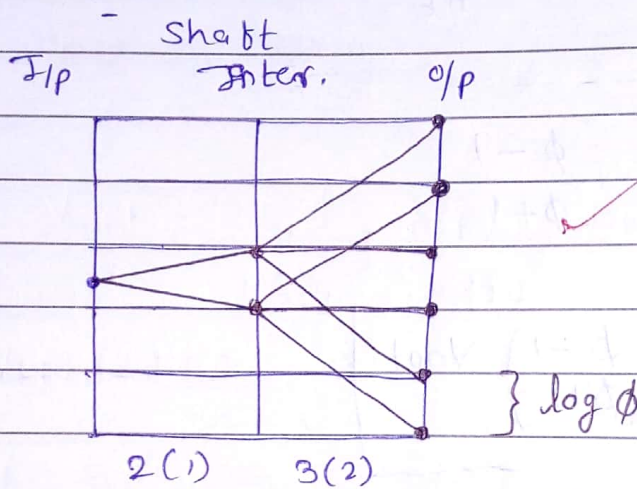 Shaft
I/p Inter. O/P
} log φ
2(1) 3(2)